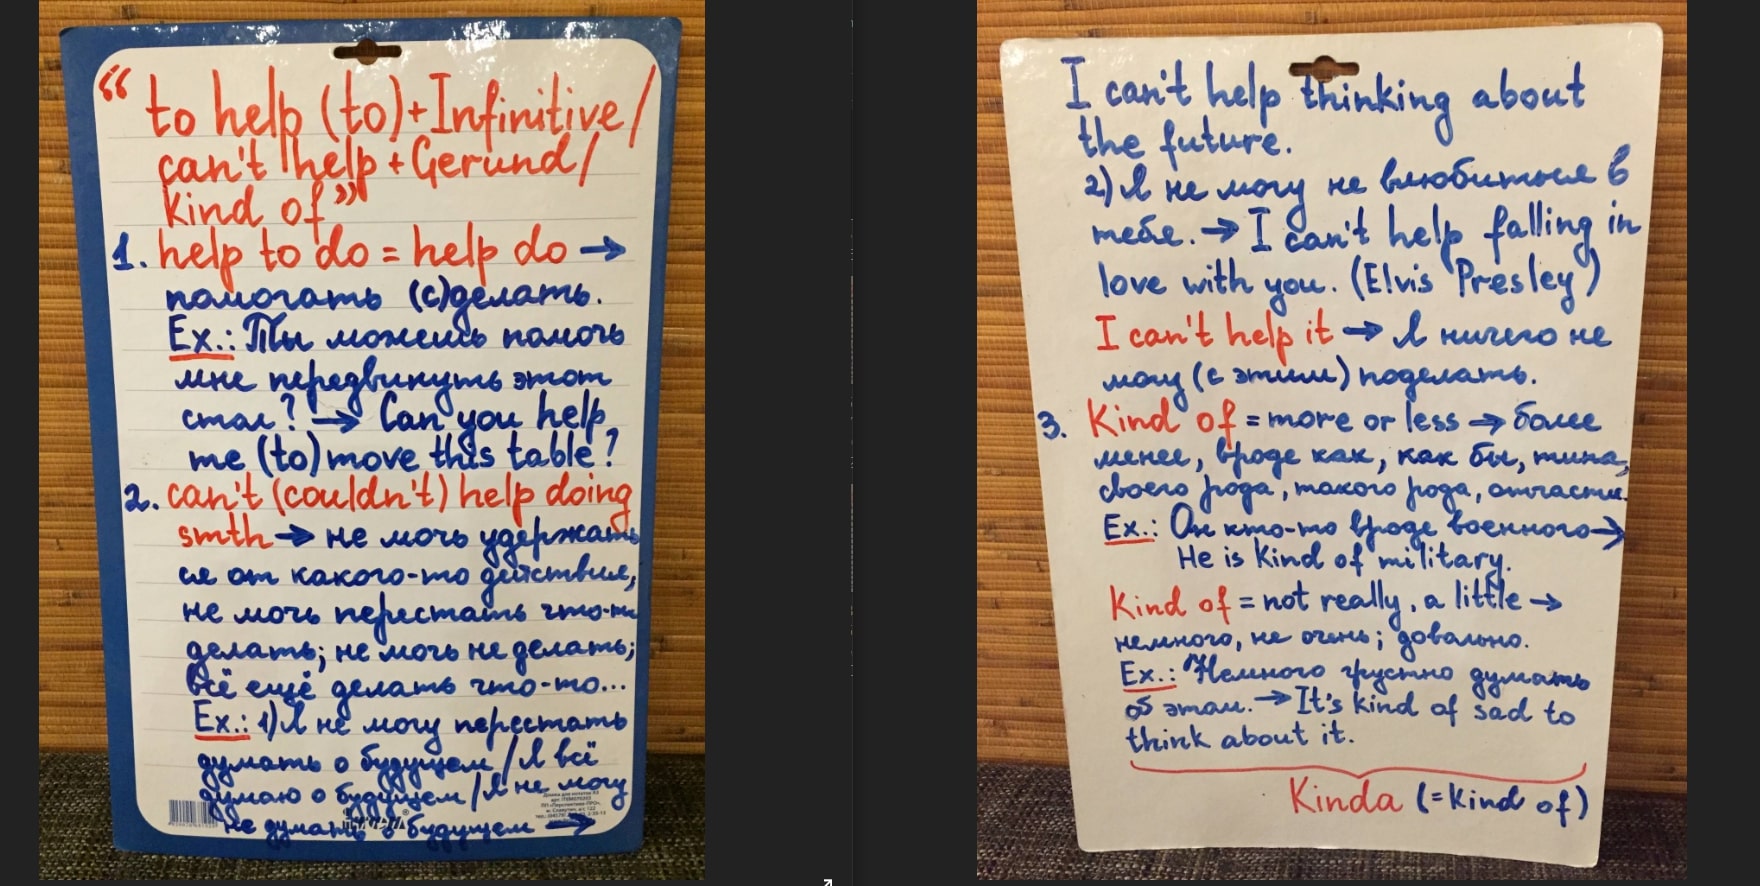 “ to help (to) + Infinitive /
can't help + Gerund /
kind of ”
1. help to do = help do →
помогать (с)делать.
Ex.: Ты можешь помочь
мне передвинуть этот
стол? → Can you help
me (to) move this table?
2. can't (couldn't) help doing
smth → не мочь удержать
ся от какого-то действия,
не мочь перестать что-то
делать; не мочь не делать;
всё ещё делать что-то...
Ex.: 1) Я не могу перестать
думать о будущем / Я всё
думаю о будущем / Я не могу
не думать о будущем →
I can't help thinking about
the future.
2) Я не могу не влюбиться в
тебя. → I can't help falling in
love with you. (Elvis Presley)
I can't help it → Я ничего не
могу (с этим) поделать.
3. Kind of = more or less → более
менее, вроде как, как бы, типа,
своего рода, такого рода, отчасти.
Ex.: Он кто-то вроде военного →
He is kind of military.
Kind of = not really, a little →
немного, не очень; довольно.
Ex.: Немного грустно думать
об этом. → It's kind of sad to
think about it.
Kinda (= kind of)